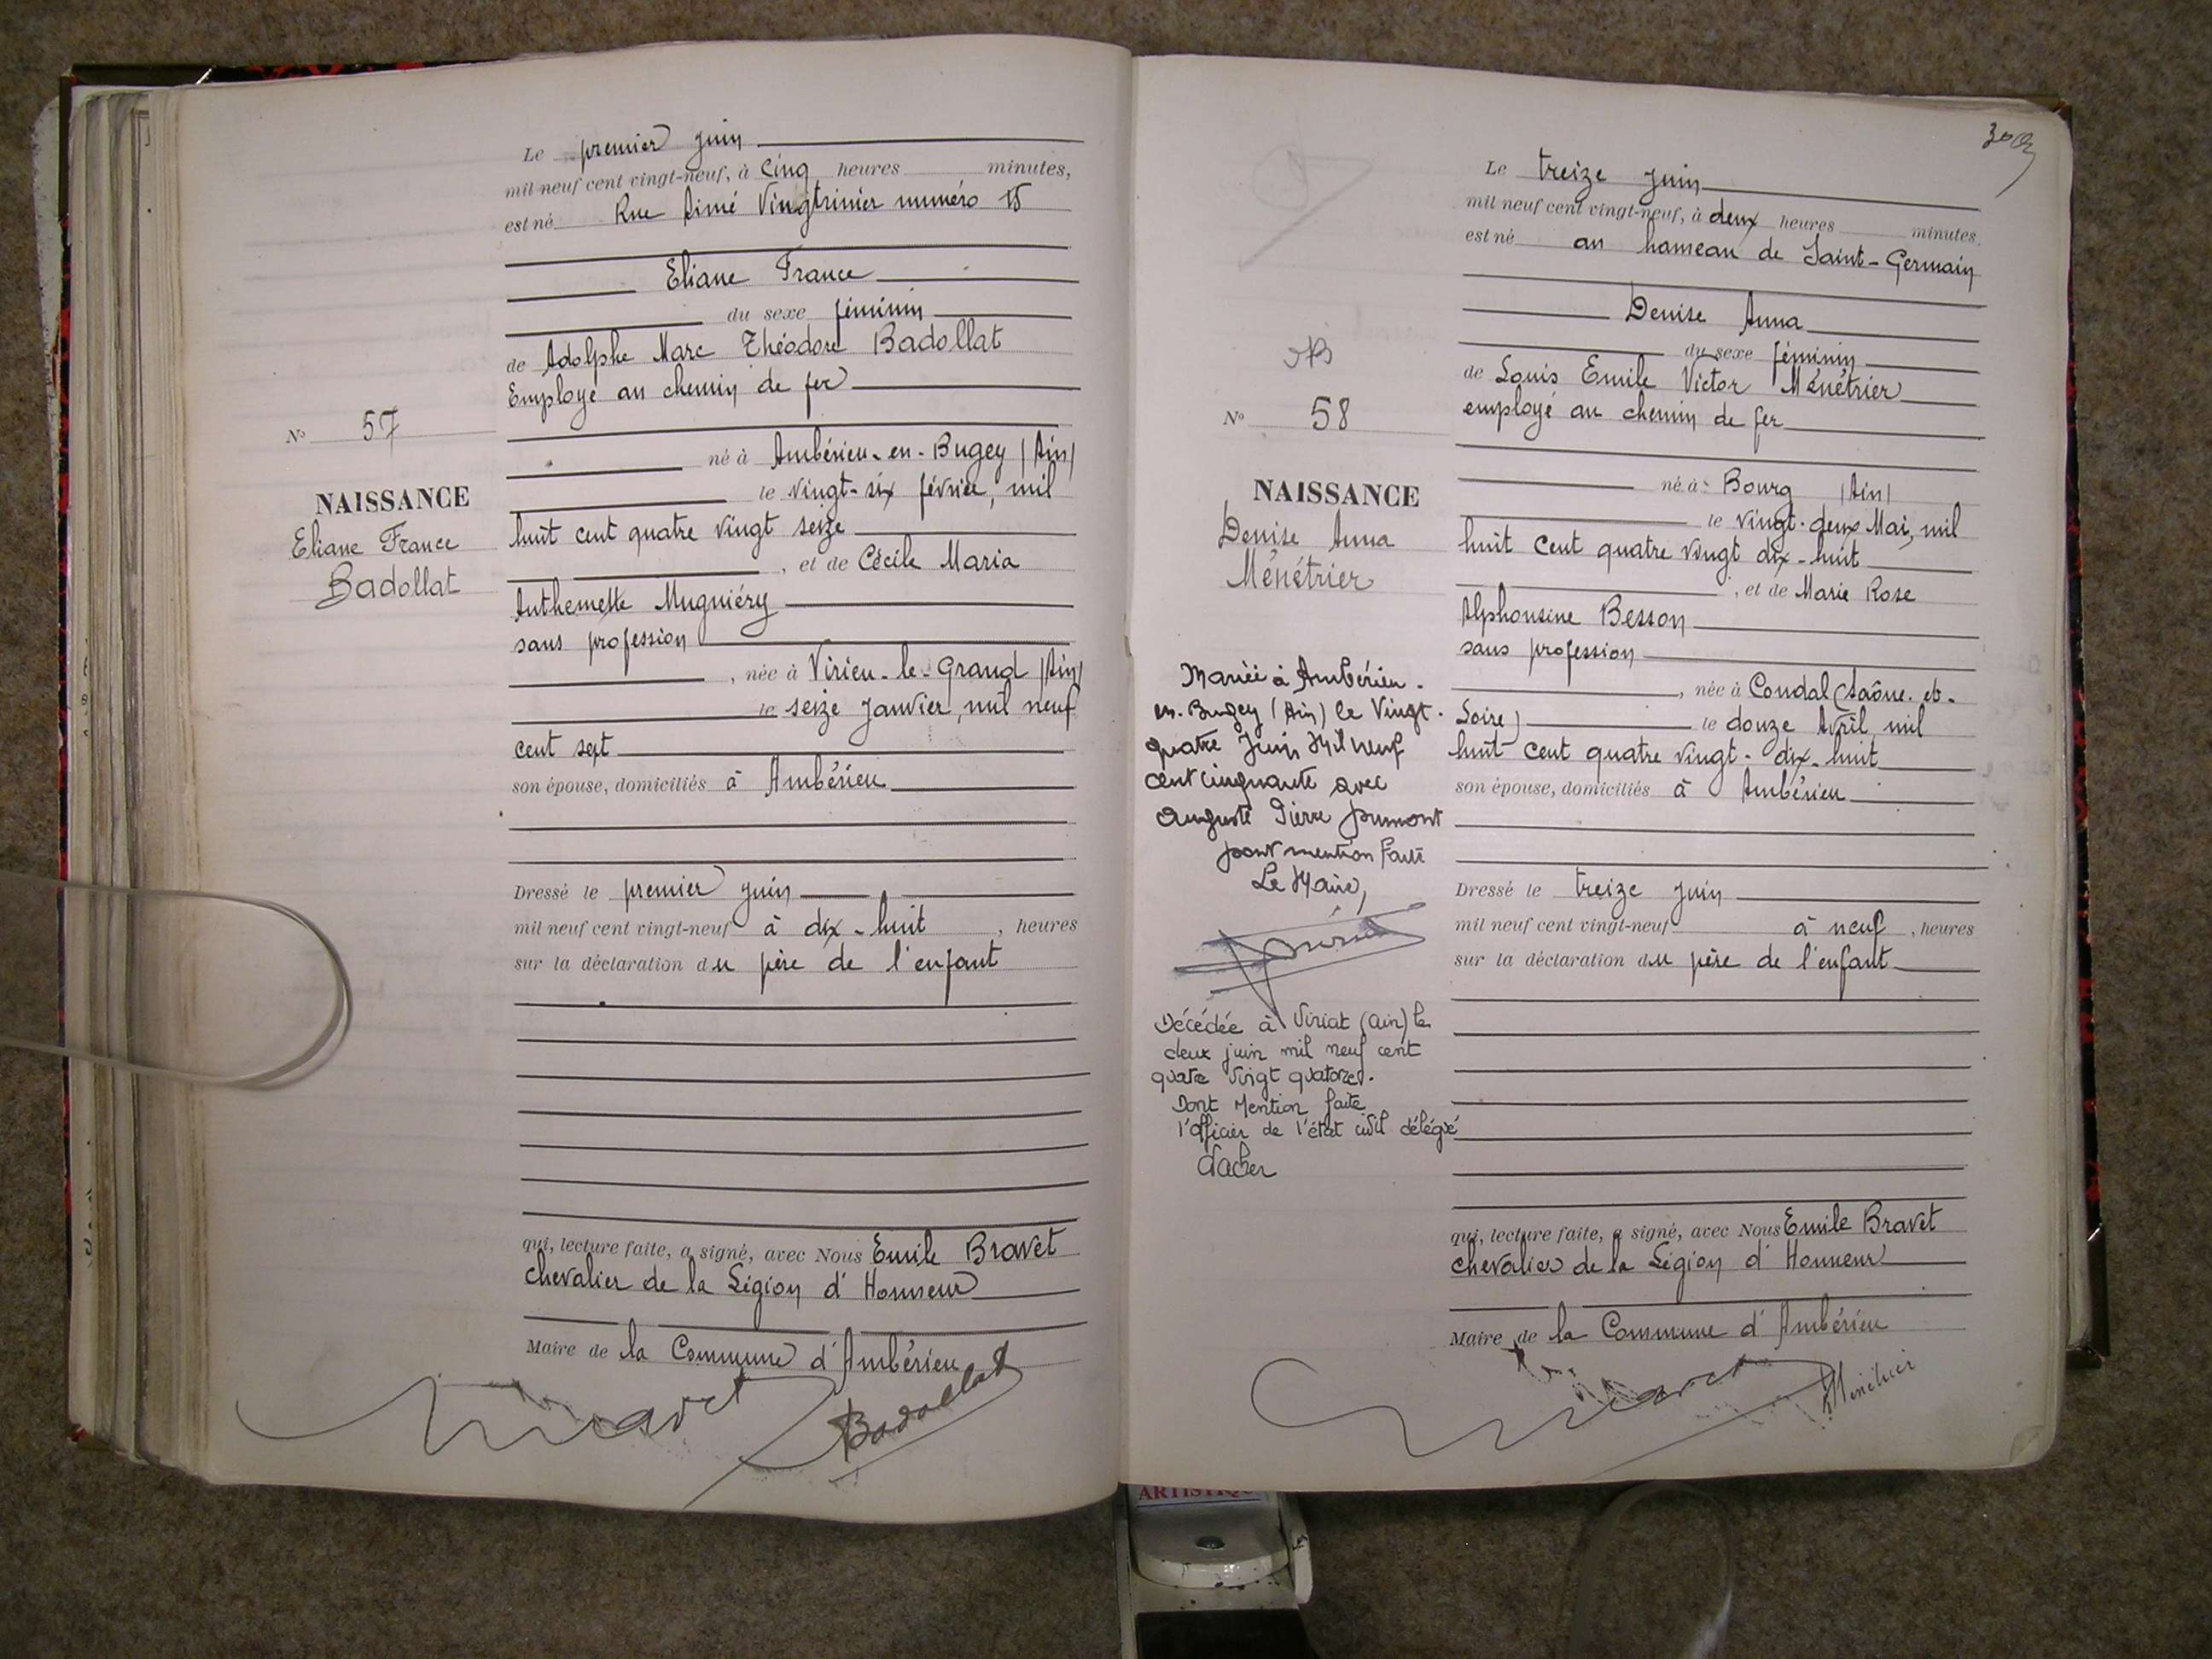 Le premier juin
mil neuf cent vingt-neuf, à cinq heures minutes,
est né Rue Aimé Vingtrinier numéro 15
Eliane France
du sexe féminin
de Adolphe Marc Théodore Badollat
Employé au chemin de fer
né à Ambérieu-en-Bugey (Ain)
le vingt-six février, mil
huit cent quatre vingt seize
, et de Cécile Maria
Anthemette Mugniéry
sans profession
, née à Virieu-le-Grand (Ain)
le seize Janvier, mil neuf
cent sept
son épouse, domiciliés à Ambérieu
Dressé le premier juin
mil neuf cent vingt-neuf à dix-huit , heures
sur la déclaration du père de l'enfant
qui, lecture faite, a signé, avec Nous Emile Bravet
chevalier de la Légion d'Honneur
Maire de la Commune d'Ambérieu
Bravet Badollat
No 57
NAISSANCE
Eliane France
Badollat
Le treize juin
mil neuf cent vingt-neuf, à deux heures minutes,
est né au hameau de Saint-Germain
Denise Anna
du sexe féminin
de Louis Emile Victor Ménétrier
employé au chemin de fer
né à Bourg (Ain)
le vingt-deux Mai, mil
huit cent quatre vingt dix-huit
, et de Marie Rose
Alphonsine Besson
sans profession
, née à Condal (Saône-et-
Loire) le douze Avril mil
huit cent quatre vingt-dix-huit
son épouse, domiciliés à Ambérieu
Dressé le treize juin
mil neuf cent vingt-neuf à neuf , heures
sur la déclaration du père de l'enfant
qui, lecture faite, a signé, avec Nous Emile Bravet
chevalier de la Légion d'Honneur
Maire de la Commune d'Ambérieu
Bravet Ménétrier
No 58
NAISSANCE
Denise Anna
Ménétrier
Mariée à Ambérieu-
en-Bugey (Ain) le Vingt-
quatre Juin Mil neuf
cent cinquante avec
Auguste Pierre Dumont
dont mention faite
Le Maire,
Décédée à Viriat (Ain) le
deux juin mil neuf cent
quatre vingt quatorze.
Dont Mention faite
l'officier de l'état civil délégué
ARTISTIQU